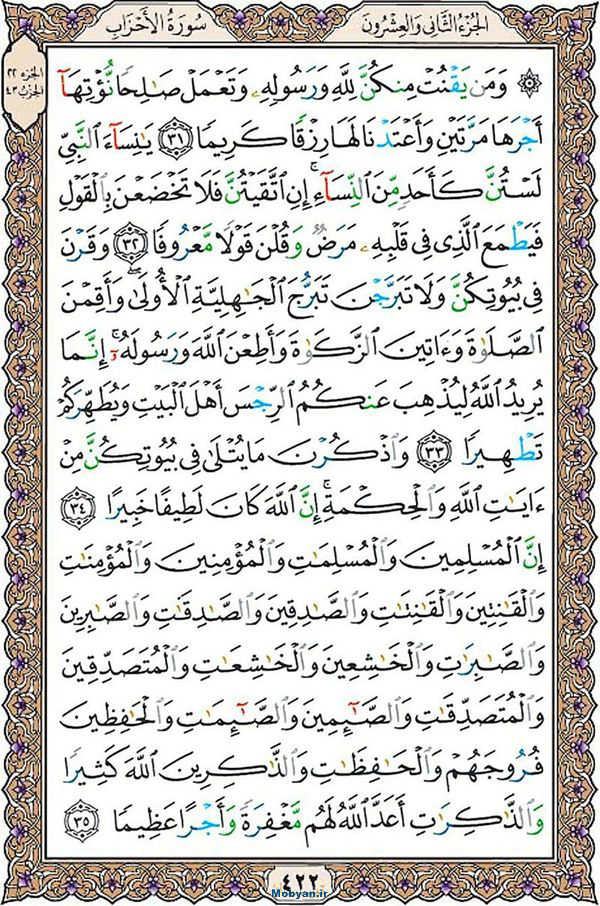 الجُزءُ الثَّانِي وَالعِشرُونَ
سُورَةُ الأَحزَابِ
الجزء ٢٢
الحزب ٤٣
۞ وَمَن يَقۡنُتۡ مِنكُنَّ لِلَّهِ وَرَسُولِهِۦ وَتَعۡمَلۡ صَٰلِحٗا نُّؤۡتِهَآ
أَجۡرَهَا مَرَّتَيۡنِ وَأَعۡتَدۡنَا لَهَا رِزۡقٗا كَرِيمٗا ٣١ يَٰنِسَآءَ ٱلنَّبِيِّ
لَسۡتُنَّ كَأَحَدٖ مِّنَ ٱلنِّسَآءِۚ إِنِ ٱتَّقَيۡتُنَّ فَلَا تَخۡضَعۡنَ بِٱلۡقَوۡلِ
فَيَطۡمَعَ ٱلَّذِي فِي قَلۡبِهِۦ مَرَضٞ وَقُلۡنَ قَوۡلٗا مَّعۡرُوفٗا ٣٢ وَقَرۡنَ
فِي بُيُوتِكُنَّ وَلَا تَبَرَّجۡنَ تَبَرُّجَ ٱلۡجَٰهِلِيَّةِ ٱلۡأُولَىٰۖ وَأَقِمۡنَ
ٱلصَّلَوٰةَ وَءَاتِينَ ٱلزَّكَوٰةَ وَأَطِعۡنَ ٱللَّهَ وَرَسُولَهُۥٓۚ إِنَّمَا
يُرِيدُ ٱللَّهُ لِيُذۡهِبَ عَنكُمُ ٱلرِّجۡسَ أَهۡلَ ٱلۡبَيۡتِ وَيُطَهِّرَكُمۡ
تَطۡهِيرٗا ٣٣ وَٱذۡكُرۡنَ مَا يُتۡلَىٰ فِي بُيُوتِكُنَّ مِنۡ
ءَايَٰتِ ٱللَّهِ وَٱلۡحِكۡمَةِۚ إِنَّ ٱللَّهَ كَانَ لَطِيفًا خَبِيرًا ٣٤
إِنَّ ٱلۡمُسۡلِمِينَ وَٱلۡمُسۡلِمَٰتِ وَٱلۡمُؤۡمِنِينَ وَٱلۡمُؤۡمِنَٰتِ
وَٱلۡقَٰنِتِينَ وَٱلۡقَٰنِتَٰتِ وَٱلصَّٰدِقِينَ وَٱلصَّٰدِقَٰتِ وَٱلصَّٰبِرِينَ
وَٱلصَّٰبِرَٰتِ وَٱلۡخَٰشِعِينَ وَٱلۡخَٰشِعَٰتِ وَٱلۡمُتَصَدِّقِينَ
وَٱلۡمُتَصَدِّقَٰتِ وَٱلصَّٰٓئِمِينَ وَٱلصَّٰٓئِمَٰتِ وَٱلۡحَٰفِظِينَ
فُرُوجَهُمۡ وَٱلۡحَٰفِظَٰتِ وَٱلذَّٰكِرِينَ ٱللَّهَ كَثِيرٗا
وَٱلذَّٰكِرَٰتِ أَعَدَّ ٱللَّهُ لَهُم مَّغۡفِرَةٗ وَأَجۡرًا عَظِيمٗا ٣٥
٤٢٢
Mobyan.ir